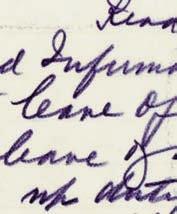 Read
d Infirma
leave of
leave of
up duty